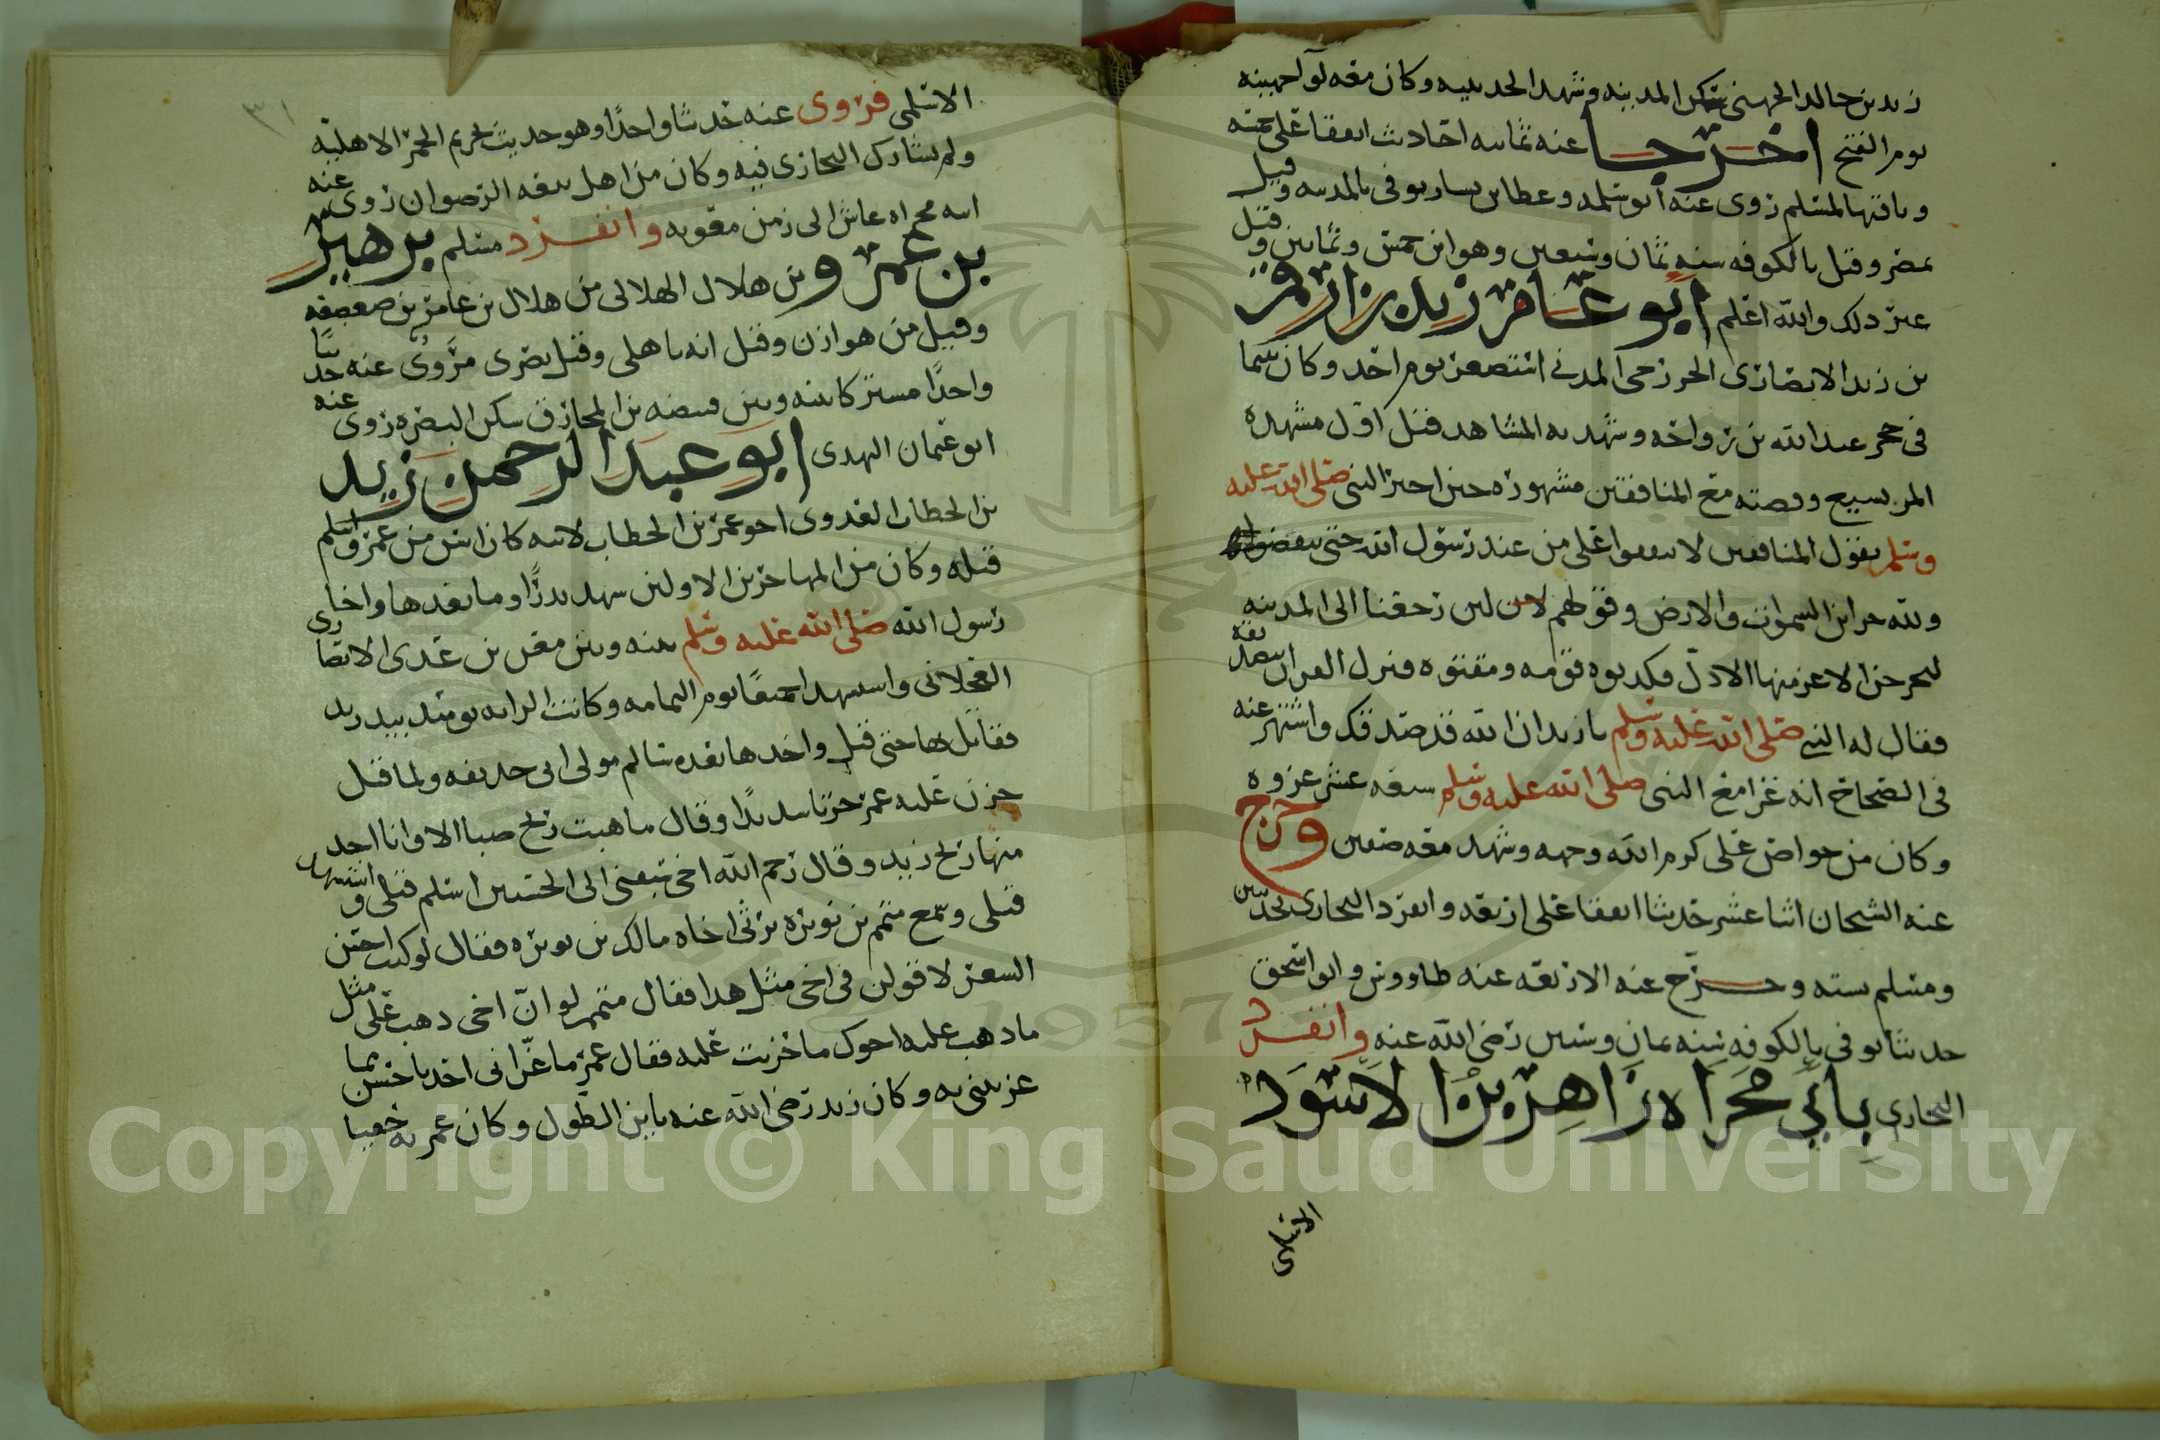 زيد بن خالد الجهني سكن المدينه وشهد الحديبيه وكان معه لوا جهينه
يوم الفتح اخرجا عنه ثمانيه احاديث اتفقا على خمسه
وباقيها لمسلم روى عنه ابو سلمه وعطا بن يسار توفى بالمدينه وقيل
بمصر وقيل بالكوفه سنه ثمان وسبعين وهو ابن خمس وثمانين وقيل
غير ذلك والله اعلم ابو عامر زيد بن ارقم
بن زيد الانصاري الخزرجي المدني استصغر يوم احد وكان يتيما
في حجر عبد الله بن رواحه وشهد به المشاهد قيل اول مشهده
المريسيع وقصته مع المنافقين مشهوره حين اخبر النبي صلى الله عليه
وسلم بقول المنافقين لا تنفقوا على من عند رسول الله حتى ينفضوا
ولله خزاين السموات والارض وقولهم لان لين رجعنا الى المدينه
ليخرجن الاعز منها الاذل فكذبوه قومه ومقتوه فنزل القران بتصديقه
فقال له النبي صلى الله عليه وسلم يا زيد ان الله قد صدقك واشتهر عنه
في الصحاح انه غزا مع النبي صلى الله عليه وسلم سبعه عشر غزوه
وكان من خواص على كرم الله وجهه وشهد معه صفين وخرج
عنه الشيخان اثنا عشر حديثا اتفقا على اربعه وانفرد البخاري بحديثين
ومسلم بسته وخرّج عنه الاربعه عنه طاووس وابو اسحق
حديثا توفى بالكوفه سنه ثمان وستين رضى الله عنه وانفرد
البخاري بابي مجزاه زاهر بن الاسود
الاسلمى
٣١
الاسلمى فروى عنه حديثا واحدًا وهو حديث تحريم الحمر الاهليه
ولم يشارك البخارى فيه وكان من اهل بيعه الرضوان روى عنه
ابنه مجزاه عاش الى زمن معويه وانفرد مسلم بزهير
بن عمرو بن هلال الهلالى من هلال بن عامر بن صعصعه
وقيل من هوازن وقيل انه باهلى وقيل بصرى مَروى عنه حديثا
واحدًا مشتركا بينه وبين قبيصه بن المخارق سكن البصره روى عنه
ابو عثمان النهدى ابو عبد الرحمن زيد
بن الخطاب العدوى اخو عمر بن الخطاب لابيه كان اسن من عمر واسلم
قبله وكان من المهاجرين الاولين شهد بدرًا وما بعدها واخا
رسول الله صلى الله عليه وسلم بينه وبين معن بن عدى الانصارى
العجلانى واستشهدا جميعًا يوم اليمامه وكانت الرايه يومئذ بيد زيد
فقاتل بها حتى قتل واخذها بعده سالم مولى ابى حذيفه ولما قتل
حزن عليه عمر حزنا شديدًا وقال ما هبت ريح صبا الا وانا اجد
منها ريح زيد وقال رحم الله اخى سبقنى الى الحسنيين اسلم قبلى واستشهد
قبلى وسمع متمم بن نويره يرثى اخاه مالك بن نويره فقال لو كنت احسن
الشعر لاقولن فى اخى مثل هذا فقال متمم لو انّ اخى ذهب على مثل
ما ذهب عليه اخوك ما حزنت عليه فقال عمر ما عزّانى احد باحسن مما
عزيتنى به وكان زيد رضى الله عنه باين الطول وكان عمر به معجبا
Copyright © King Saud University
1957